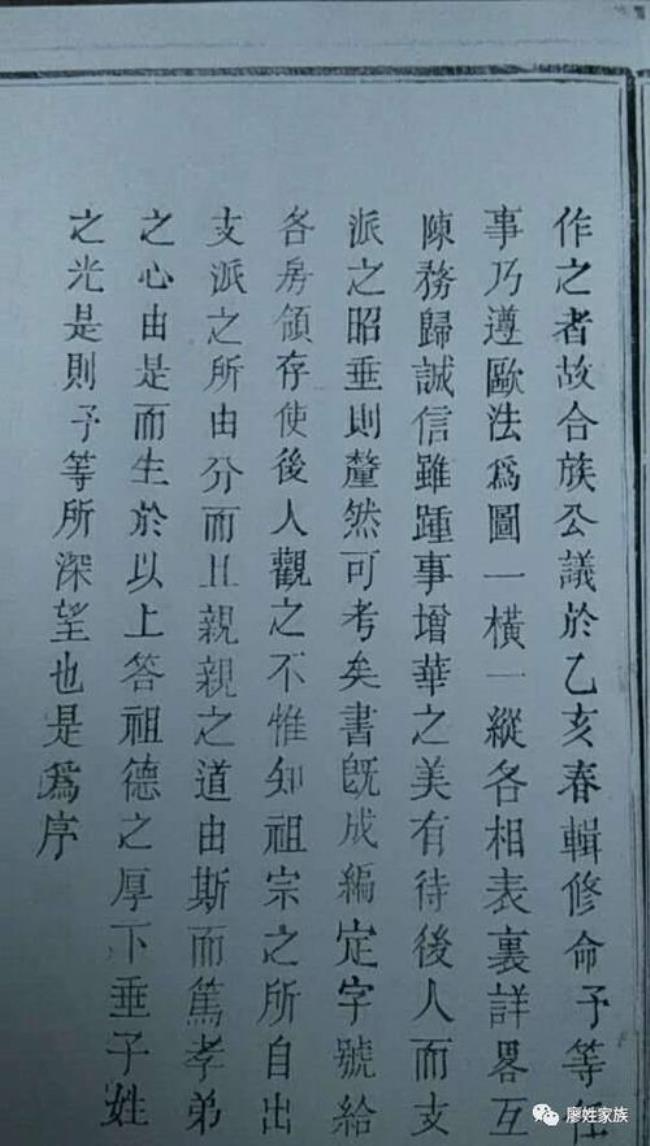 作之者故合族公議於乙亥春輯修命予等任
事乃遵歐法爲圖一橫一縱各相表裏詳畧互
陳務歸誠信雖踵事增華之美有待後人而支
派之昭垂則釐然可考矣書旣成編定字號給
各房領存使後人觀之不惟知祖宗之所自出
支派之所由分而且親親之道由斯而篤孝弟
之心由是而生於以上答祖德之厚下垂子姓
之光是則予等所深望也是爲序
廖姓家族